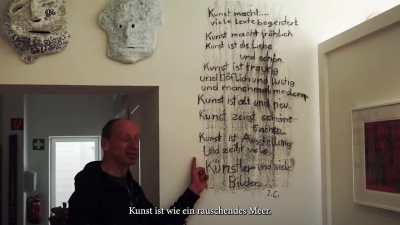 Kunst macht....
viele Leute begeistert
Kunst macht fröhlich
Kunst ist das Liebe
und schön.
Kunst ist traurig
und höflich und lustig
und manchmal modern
Kunst ist alt und neu.
Kunst zeigt schöne
Sachen.
Kunst ist Ausstellung
Und zeigt viele
Künstler und viele
Bilder.
J.C.
Kunst ist wie ein rauschendes Meer.